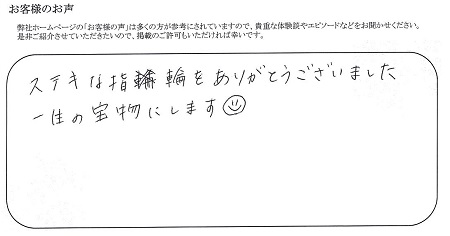 お客様のお声
弊社ホームページの「お客様の声」は多くの方が参考にされていますので、貴重な体験談やエピソードなどをお聞かせください。
是非ご紹介させていただきたいので、掲載のご許可もいただければ幸いです。
ステキな指輪をありがとうございました
一生の宝物にします